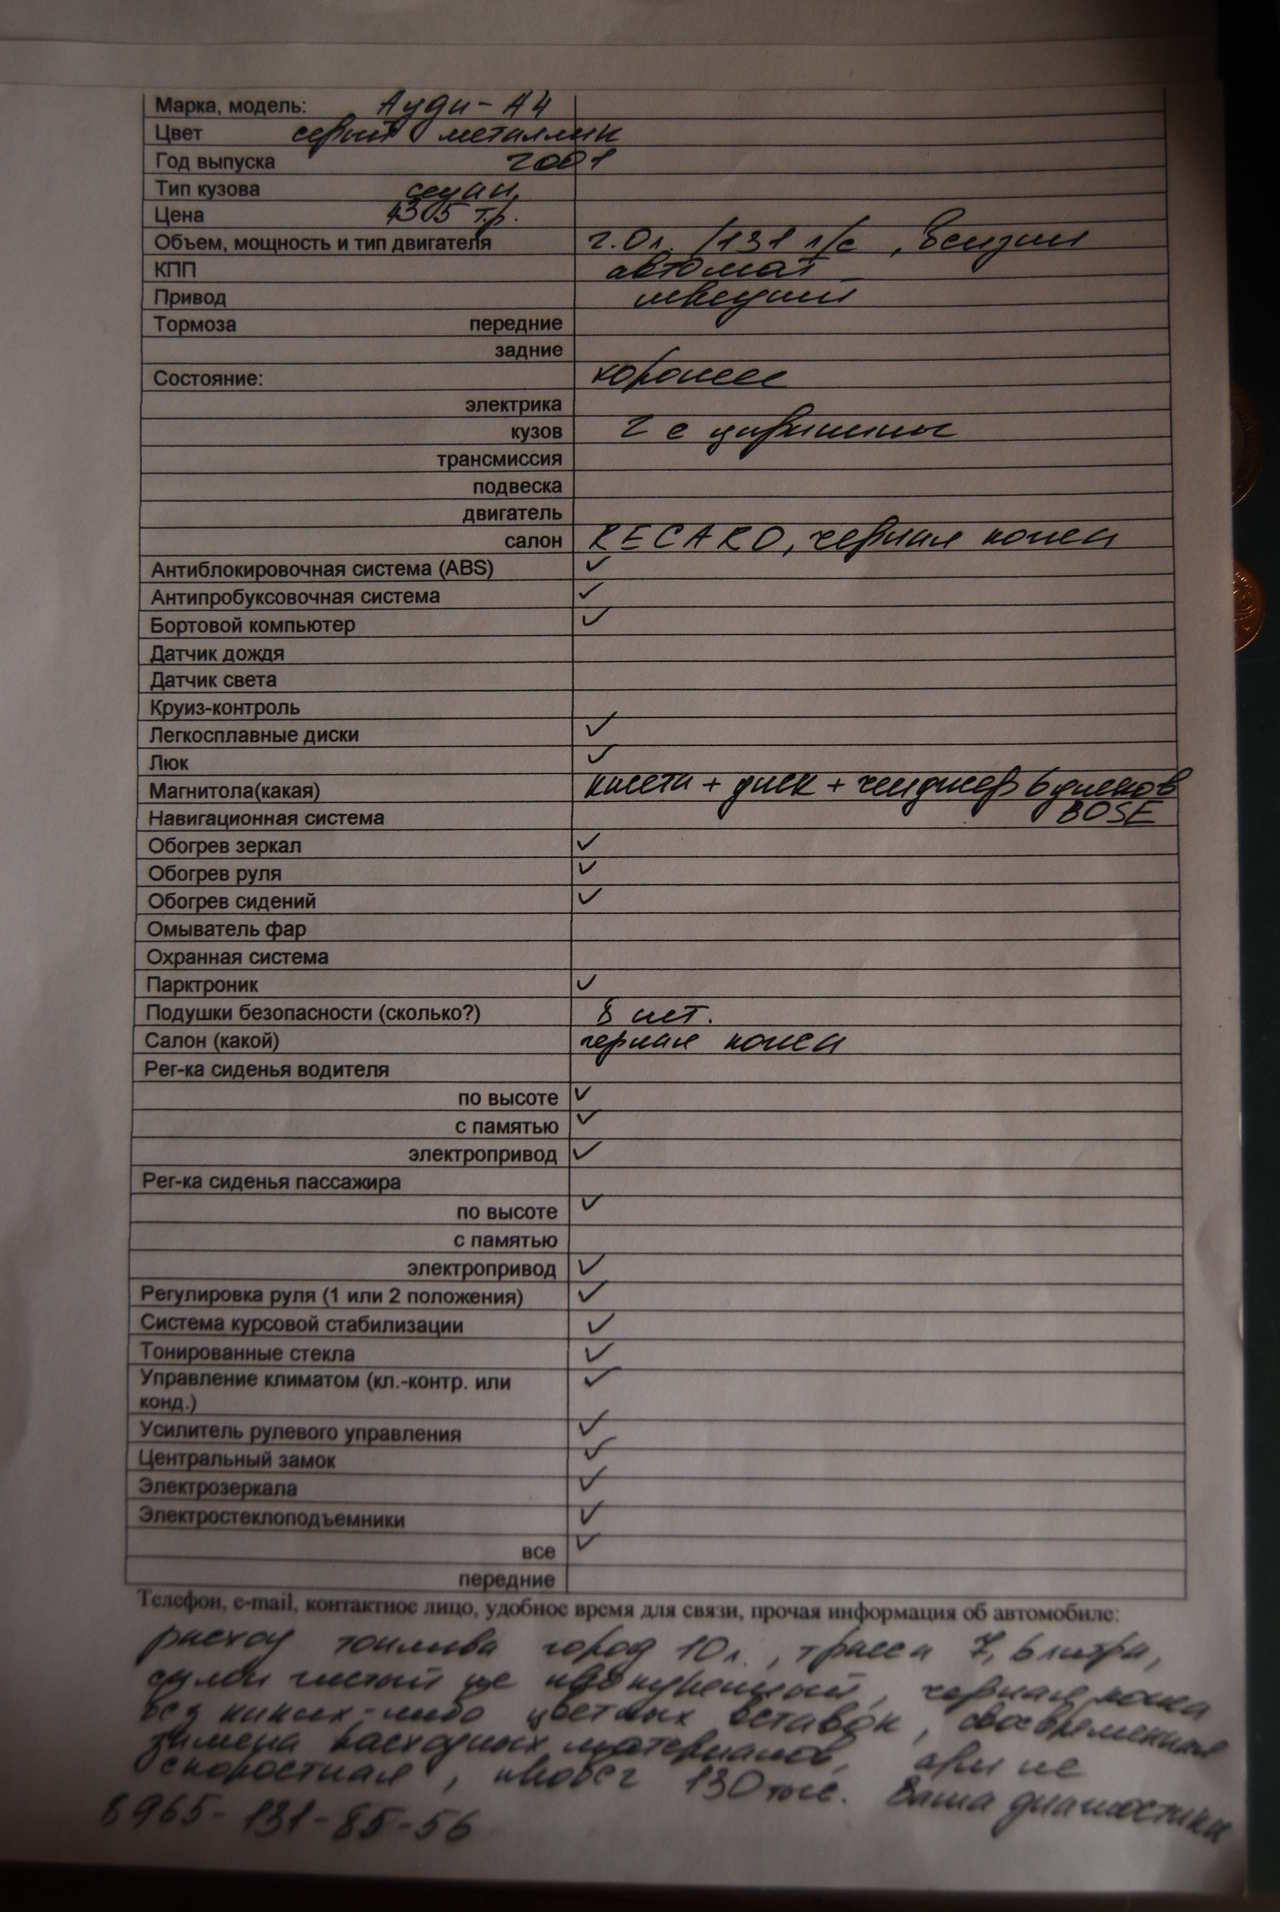 Марка, модель: Ауди - А4
Цвет серый металлик
Год выпуска 2001
Тип кузова седан
Цена 305 т.р.
Объем, мощность и тип двигателя 2.0л. /131 л/с, бензин
КПП автомат
Привод передний
Тормоза передние
задние
Состояние: хорошее
электрика
кузов 2 с царапины
трансмиссия
подвеска
двигатель
салон RECARO, черная кожа
Антиблокировочная система (ABS) ✓
Антипробуксовочная система ✓
Бортовой компьютер ✓
Датчик дождя
Датчик света
Круиз-контроль
Легкосплавные диски ✓
Люк ✓
Магнитола(какая) кассета + диск + чейджер 6 дисков
BOSE
Навигационная система
Обогрев зеркал ✓
Обогрев руля ✓
Обогрев сидений ✓
Омыватель фар
Охранная система
Парктроник ✓
Подушки безопасности (сколько?) 8 шт.
Салон (какой) черная кожа
Рег-ка сиденья водителя
по высоте ✓
с памятью ✓
электропривод ✓
Рег-ка сиденья пассажира
по высоте ✓
с памятью
электропривод ✓
Регулировка руля (1 или 2 положения) ✓
Система курсовой стабилизации ✓
Тонированные стекла ✓
Управление климатом (кл.-контр. или ✓
конд.)
Усилитель рулевого управления ✓
Центральный замок ✓
Электрозеркала ✓
Электростеклоподъемники ✓
все ✓
передние
Телефон, e-mail, контактное лицо, удобное время для связи, прочая информация об автомобиле:
расход топлива город 10л., трасса 7,6 литра,
салон чистый не прокуренный, черная кожа
без каких-либо цветных вставок, своевременная
замена расходных материалов, не
скоростная, пробег 130 тыс. Ваша диагностика
8965-131-85-56